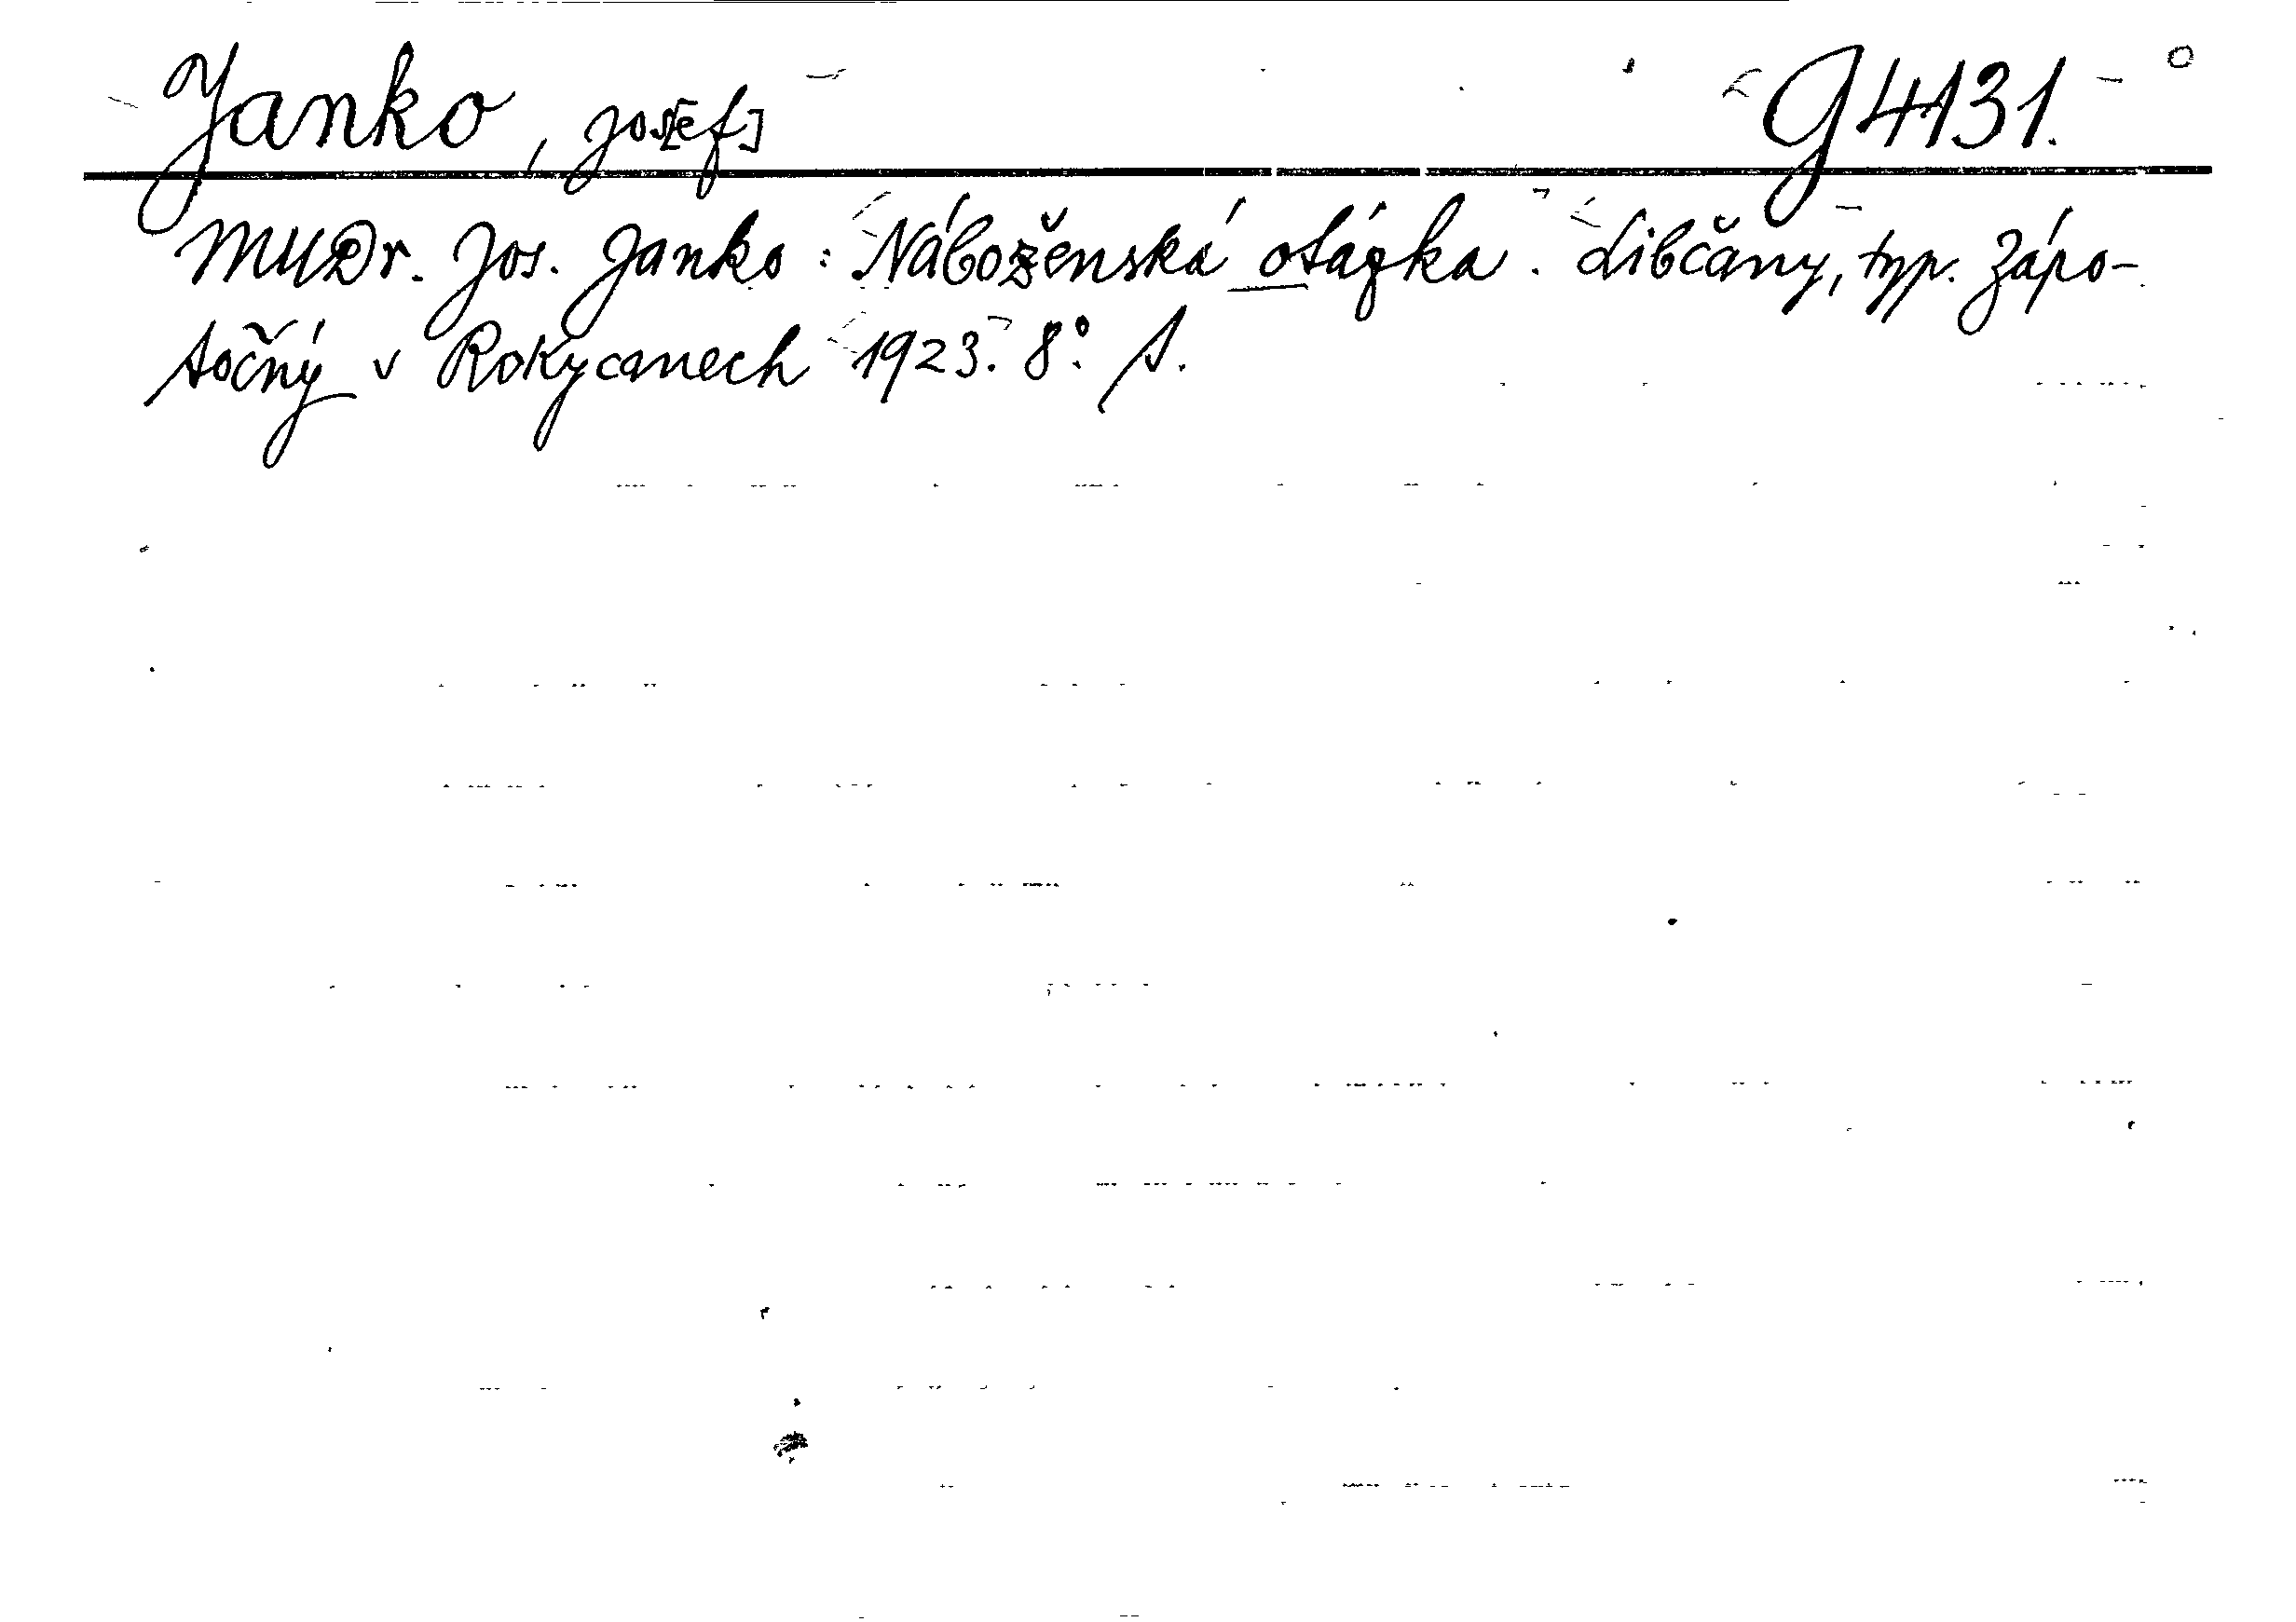 Janko, Jos[ef] G 4131.
MUDr. Jos. Janko: Náboženská otázka. Libčany, typ. Zápo-
točný v Rokycanech 1923. 8°. S.